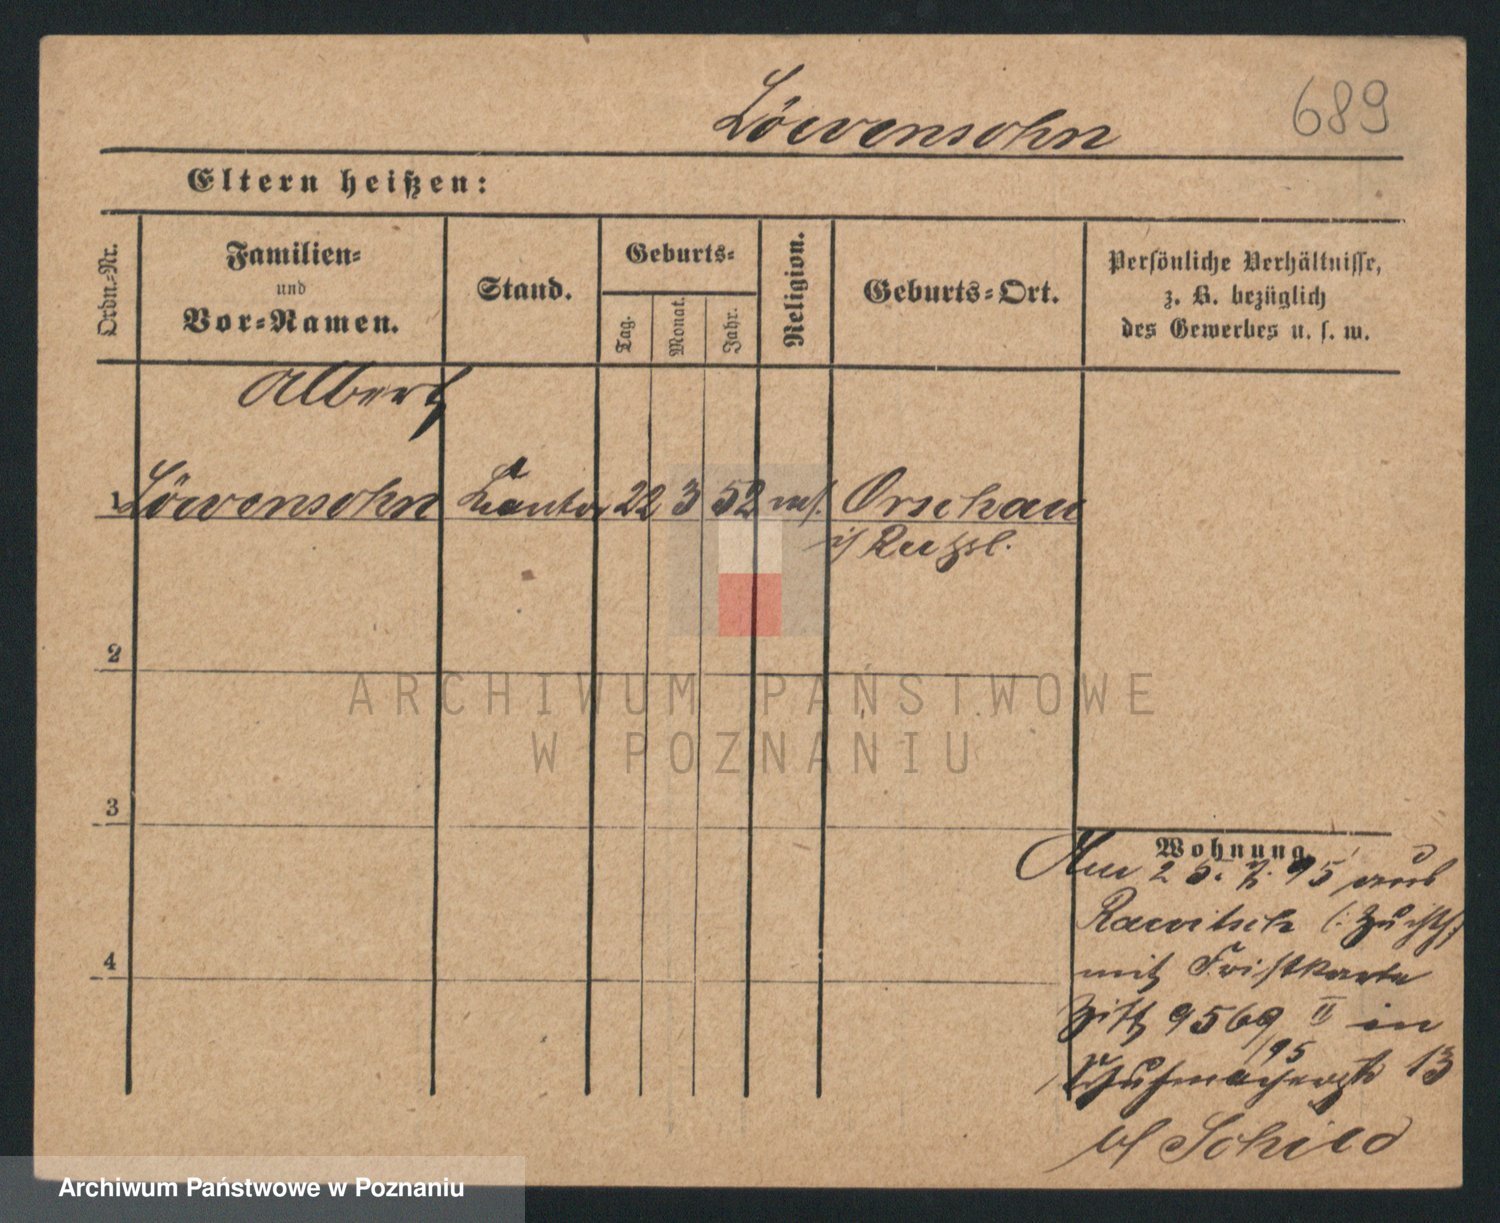 Löwensohn 689
Eltern heißen:
Ordn.-Nr.
Familien-
und
Vor-Namen.
Stand.
Geburts-
Tag.
Monat.
Jahr.
Religion.
Geburts-Ort.
Persönliche Verhältnisse,
z. B. bezüglich
des Gewerbes u. s. w.
Albert
1 Löwensohn Kantor 22 3 52 mos. Orschau
i/ Rußl.
2
ARCHIWUM PAŃSTWOWE
W POZNANIU
3
Wohnung
25. 7. 95 aus
Rawitsch (: Zuchth:)
mit Fristkarte
9569 II in
/95
Schuhmacherstr 13
b/ Schild
4
Archiwum Państwowe w Poznaniu